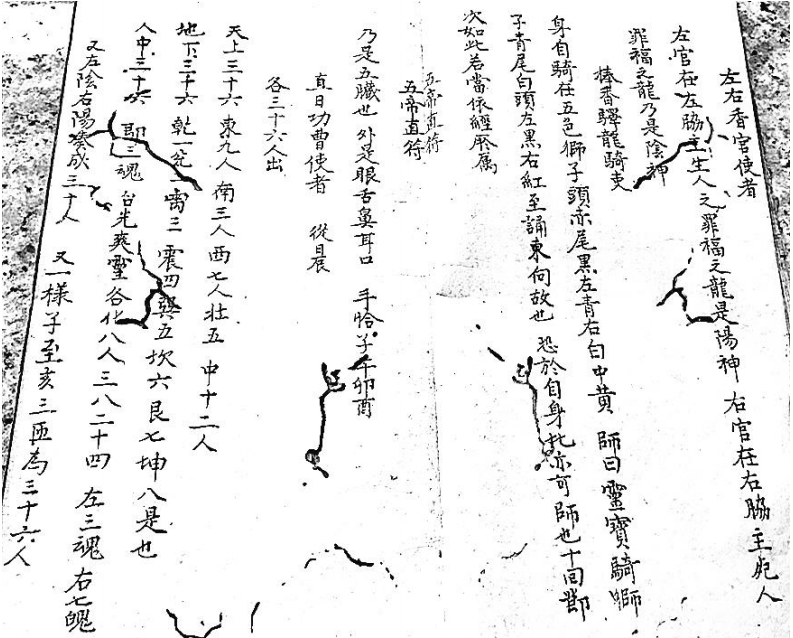 左右香官使者
左官在左脇主生人之罪福之龍是陽神 右官在右脇主死人
罪福之龍乃是陰神
捧香驛龍騎吏 師曰靈寶騎獅
身自騎在五色獅子頭赤尾黑左青右白中黄
子青尾白頭左黑右紅至誦東向故也 恐於自身化亦可 師也十回
次如此若當依經所属
五帝直符
五帝直符
乃是五臓也 外是眼舌鼻耳口 手恰子午卯酉
直日功曹使者 從日辰
各三十六人出
天上三十六 東九人 南三人 西七人 北五 中十二人
地下三十六 乾一兌二离三 震四巽五坎六艮七坤八是也
人中三十六 即三魂 台光爽靈各化八人三八二十四 左三魂 右七魄
又左陰右陽凑成三十人 又一樣子至亥三匝為三十六人